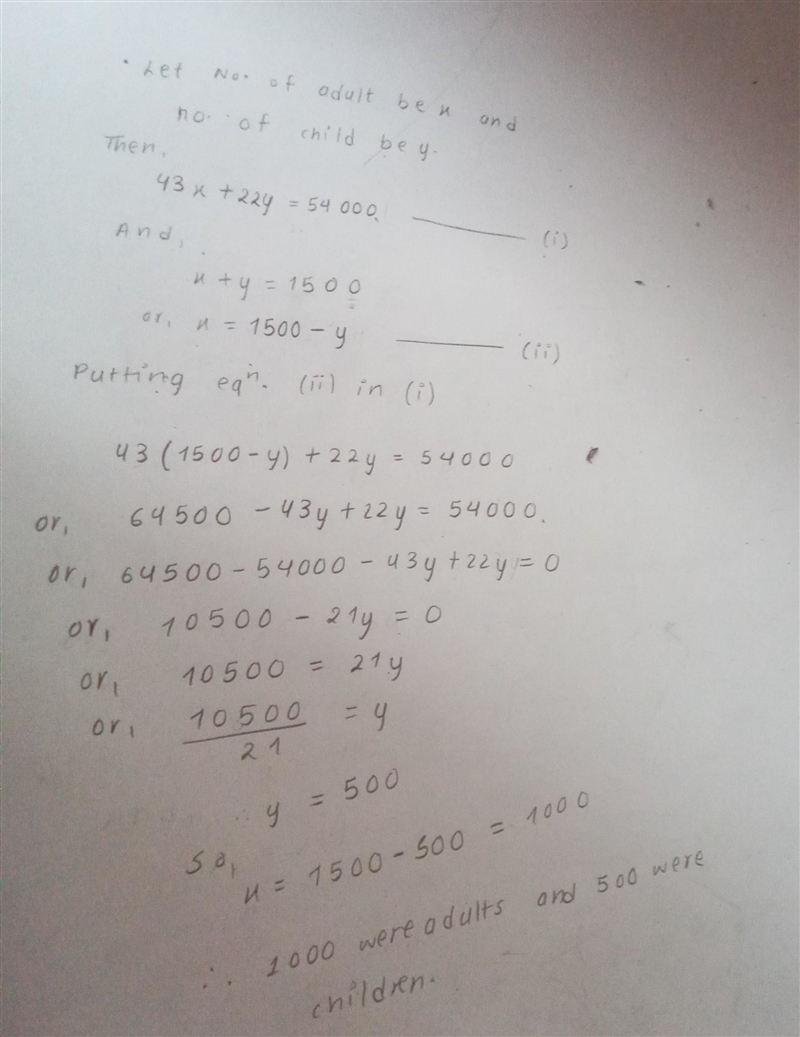 • Let No. of adult be x and
no. of child be y.
Then,
43x + 22y = 54000. ——— (i)
And,
x + y = 1500
or, x = 1500 - y ——— (ii)
Putting eqⁿ. (ii) in (i)
43 (1500 - y) + 22y = 54000
or, 64500 - 43y + 22y = 54000.
or, 64500 - 54000 - 43y + 22y = 0
or, 10500 - 21y = 0
or, 10500 = 21y
or, 10500/21 = y
∴ y = 500
So,
x = 1500 - 500 = 1000
∴ 1000 were adults and 500 were
children.